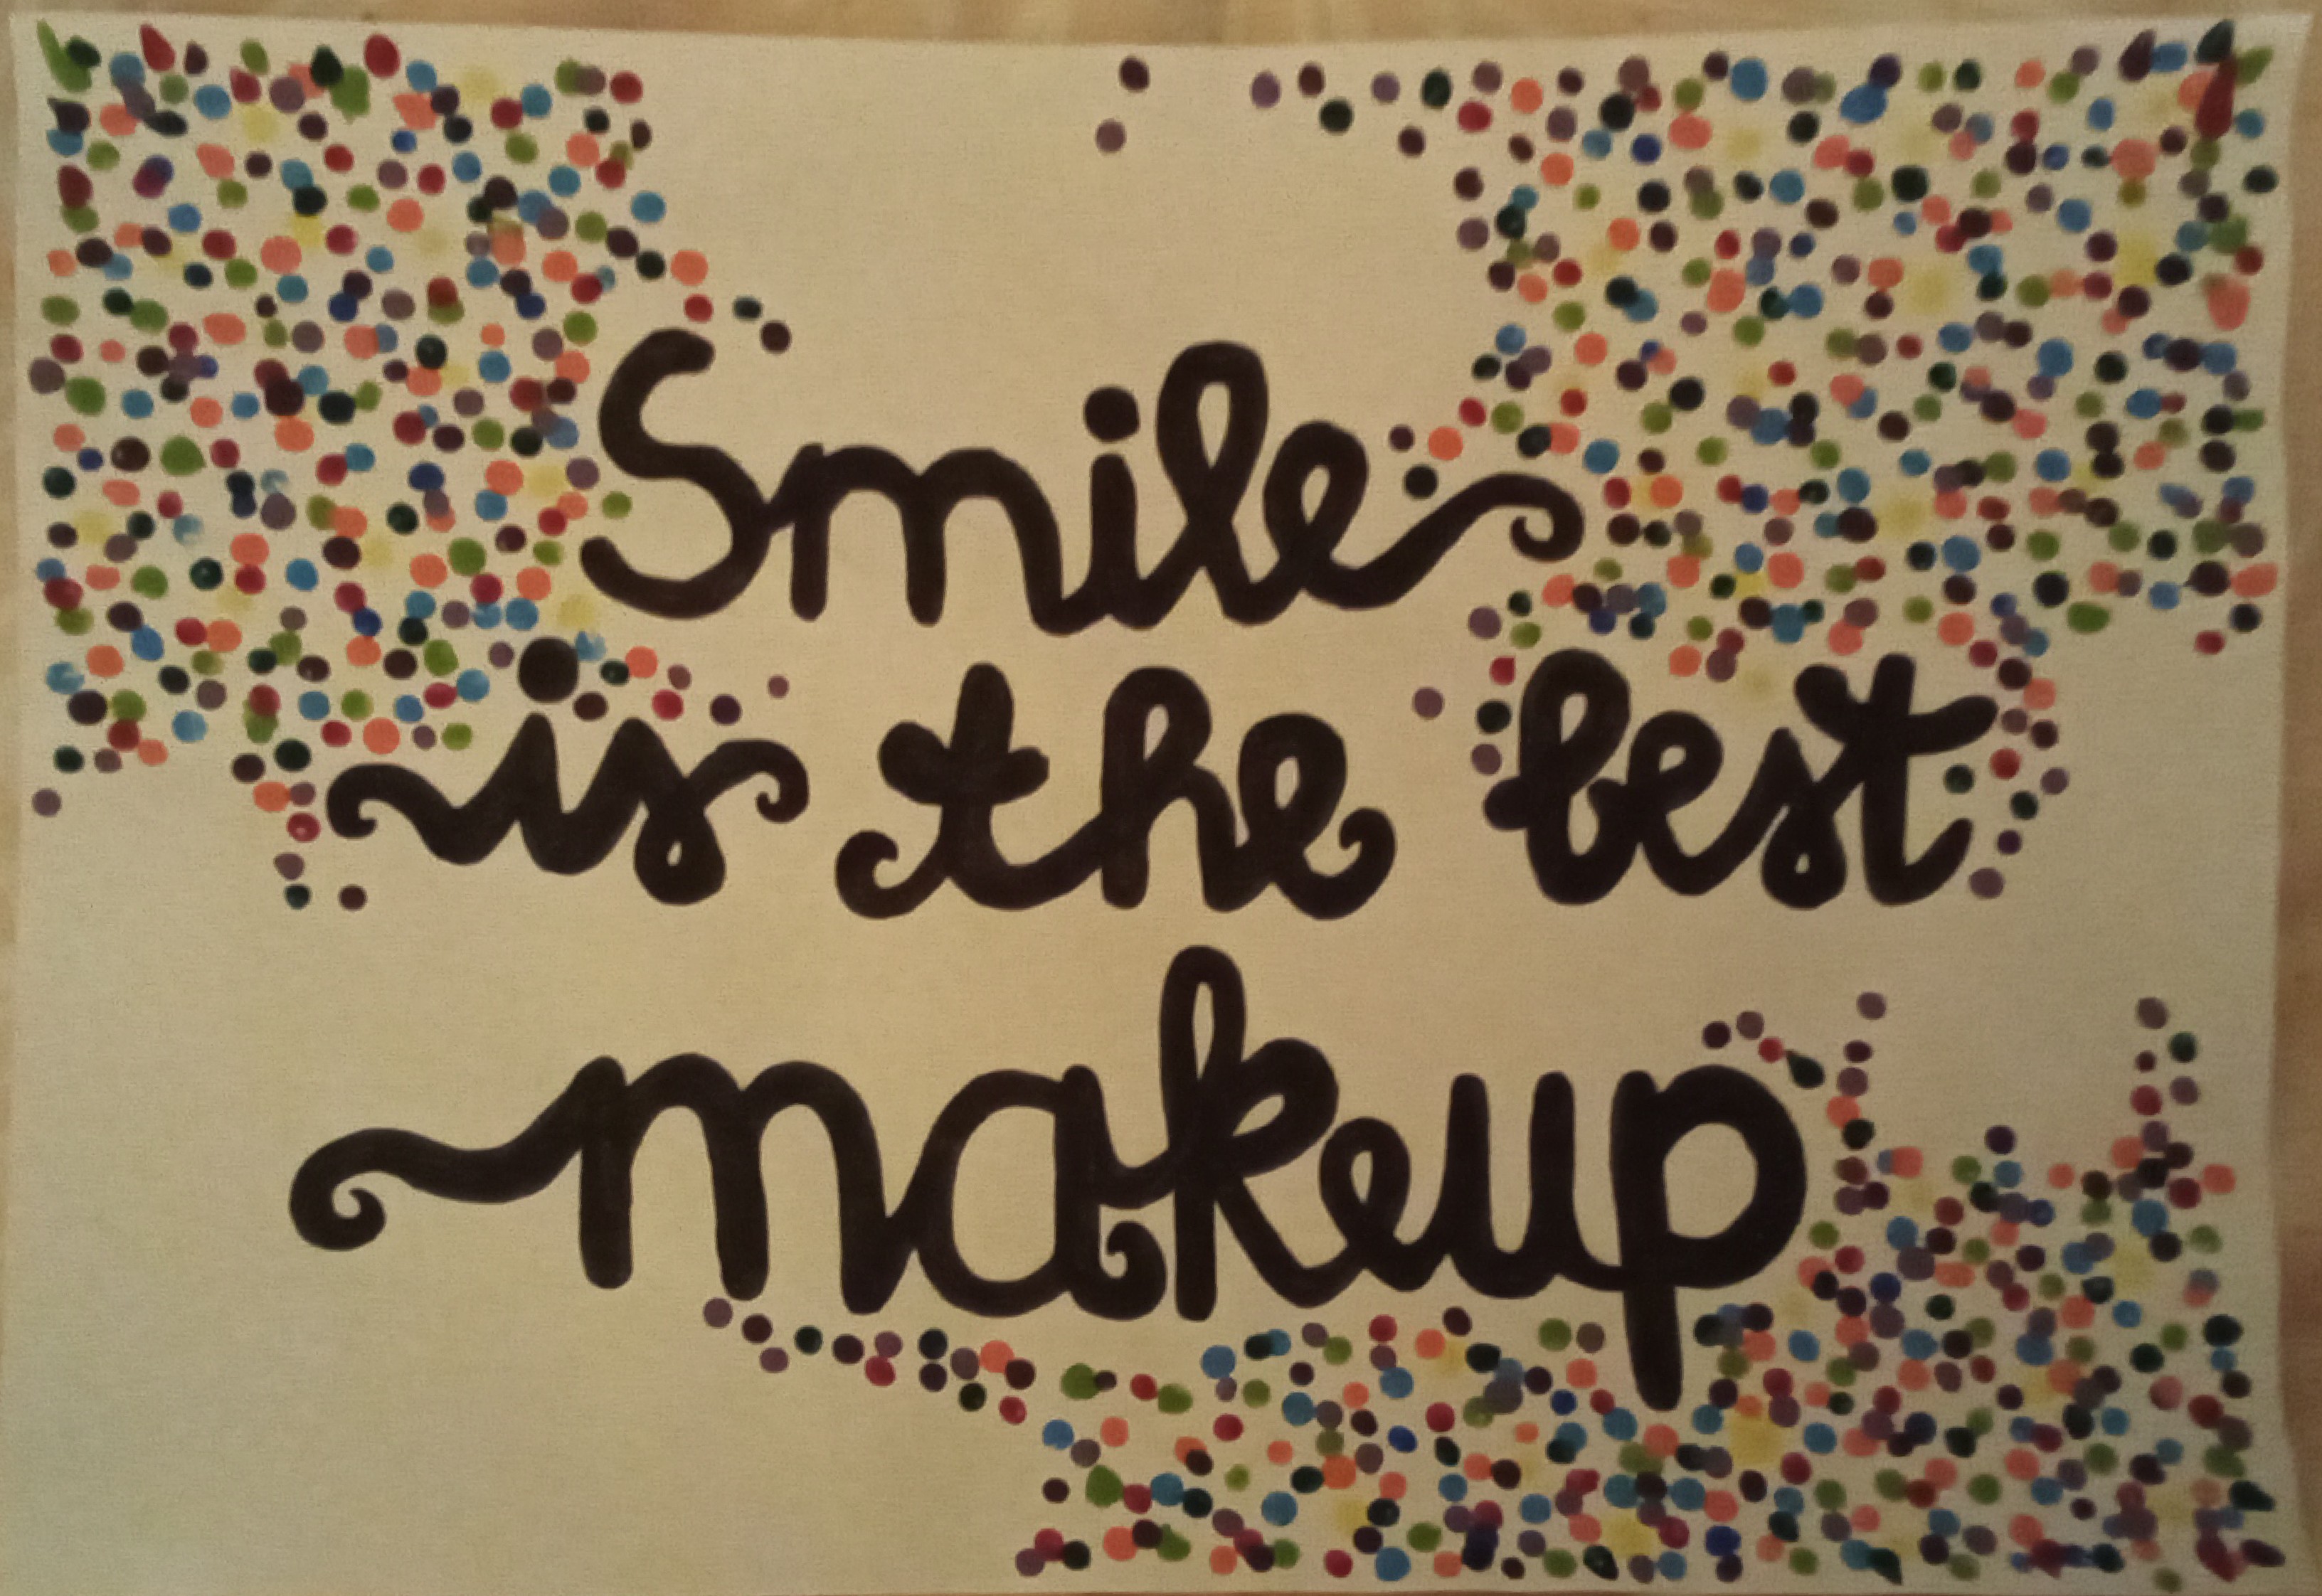 Smile
is the best
makeup